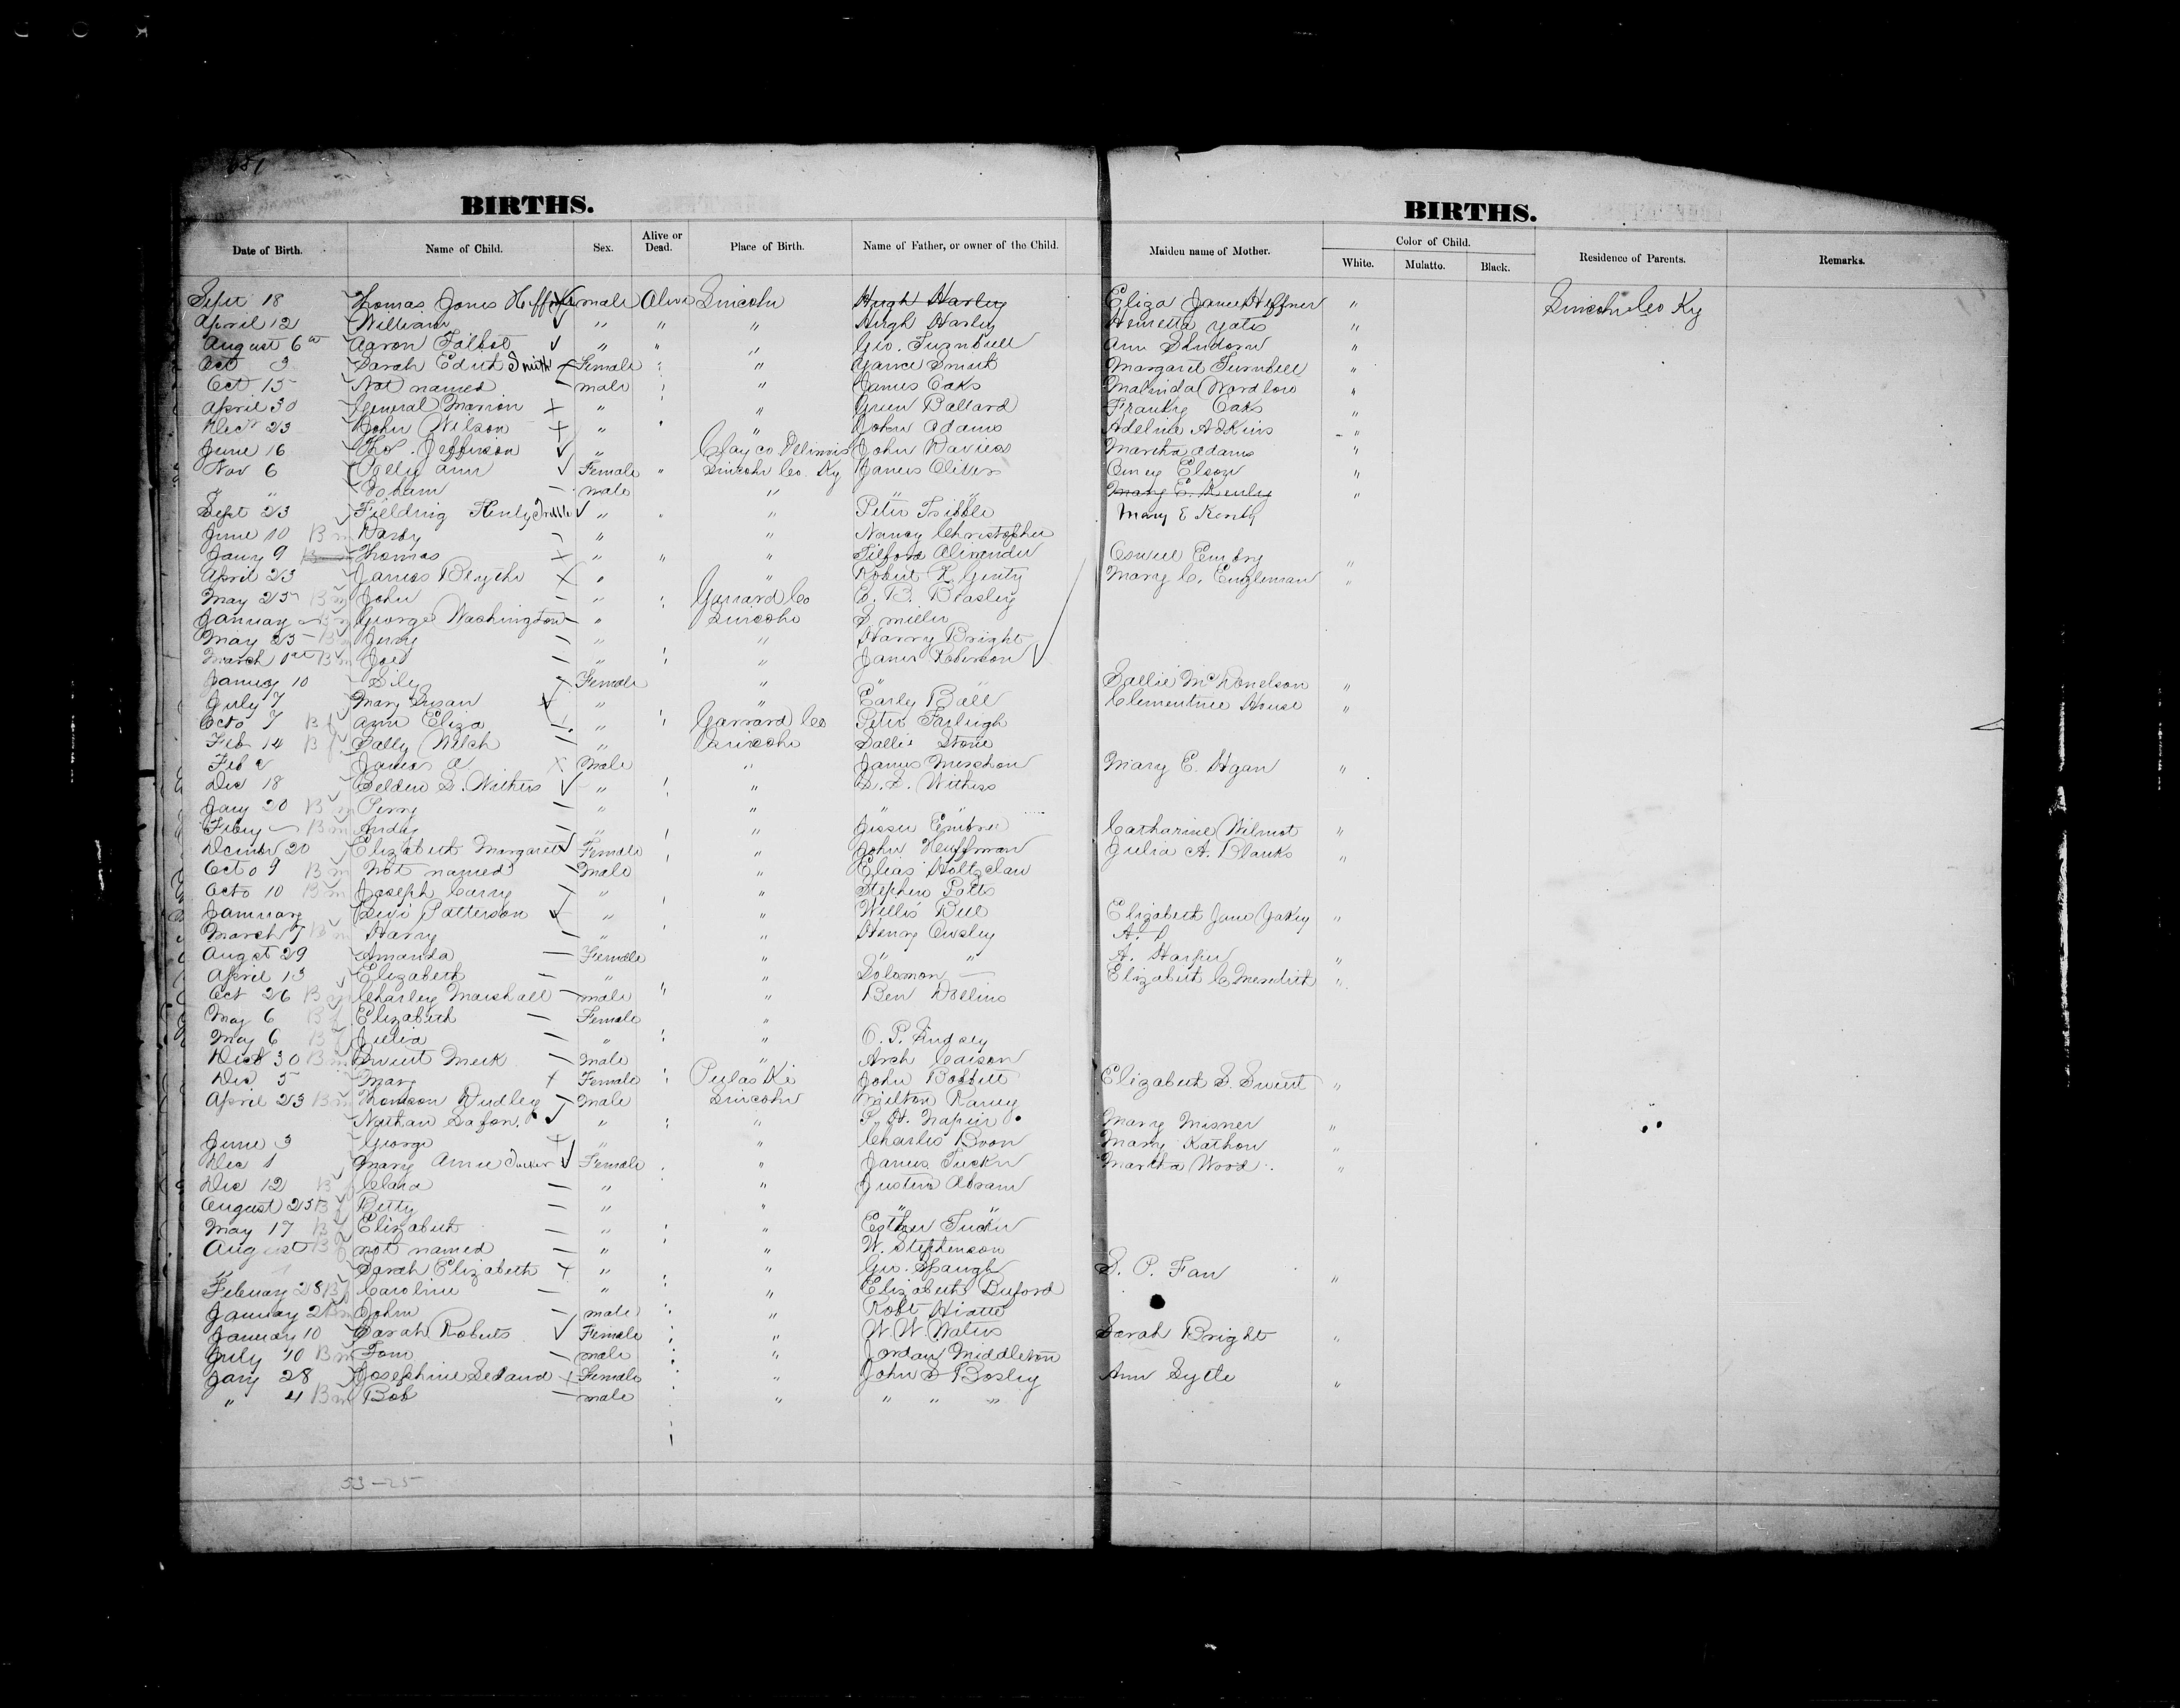 BIRTHS. BIRTHS.
Date of Birth. Name of Child. Sex. Alive or Dead. Place of Birth. Name of Father, or owner of the Child. Maiden name of Mother. Color of Child. White. Mulatto. Black. Residence of Parents. Remarks.
Sept 18 Thomas Jones male Alive Lincoln Hugh Harley Eliza Jane Heffner " Lincoln Co Ky
April 12 William " " " Hugh Harley Henretta Yates "
August 6 Aaron Talbot " " " Geo. Turnbull Ann "
Oct 3 Sarah Edith Smith Female " " Smith Margaret Turnbull "
Oct 15 Not named male " " James Oaks Malinda Wardlow "
April 30 General Marion " " Green Ballard Franky Oaks "
Dec 23 John Wilson " " " John Adams Adeline Adkins "
June 16 Tho. Jefferson " Clay co Illinois John Davies Martha Adams "
Nov 6 Polly Ann Female " Lincoln Co. Ky James Oliver Elson "
" " male " " " Mary E. Kenly "
Sept 23 Fielding Kenly Tribble " " " Peter Tribble Mary E Kenly
June 10 B m Darby " " Nancy Christopher
Jany 9 Thomas " " " Tilford Alexander Embry "
April 23 James Blythe " " Robert Genty Mary C. Engleman "
May 25 B m John " " Garrard Co B. Beasley
January B m George Washington " Lincoln S Miller
May 25 B m Jerry " " Harry Bright
March 1st B m Joe " " " James Roberson
January 10 Female " " " Sallie McDonelson "
July 7 Mary Susan " " Early Ball Clementine House "
Octo 7 B f Ann Eliza " " Garrard Co Peter Farleigh
Feb 14 B f Sally Welch " Lincoln Sallie Stone
Feb James A Male " James Mary E. Hgan "
Dec 18 Belden S. Withers " " " Withers
Jany 20 B m Perry " " " "
Feby B m Andy " " " Jesse Embree Catharine Wilmot "
Decmbr 20 Elizabeth Margaret Female " " John Heuffman Julia A. Blanks "
Octo 9 B m Not named Male " Elias Holtzclaw
Octo 10 B m Joseph " " Stephen Potts
January Levi Patterson " " " Willis Bell Elizabeth Jane Yakey "
March 7 B m Harry " " " Henry Owsley
August 29 Amanda Female " " " A. Harper "
April 13 Elizabeth " " Solomon Elizabeth C Meredith "
Oct 26 B m Charley Marshall male " " Ben Dollins
May 6 B f Elizabeth Female "
May 6 B f Julia " " " O. P. Lindsey
Dec 30 B m Meek Male " Arch Carson
Dec 5 Mary Female " Pulaski John Bobbitt Elizabeth S. Sweet "
April 23 B m Thomson Dudley Male Lincoln Milton Raney
Nathan Safon " " " P. H. Napier Mary Misner "
June 3 George " " Charles Boon Mary Kathon "
Dec 1 Mary Anne Tucker Female " " James Tucker Martha Wood "
Dec 12 B f Clara " " Abram
August 25 B f Betty " " " "
May 17 B f Elizabeth " " " Esther Tucker
August B f not named " " " W. Stephenson
" Sarah Elizabeth " " Geo. Spaugh S. P. Fan "
Febuary 28 B f Caroline " " " Elizabeth Buford
January 2 B m John male " " Robt Hiatte
January 10 Sarah Roberts Female " " W W Waters Sarah Bright "
July 10 B m Tom male " " Jordan Middleton
Jany 28 Josephine Female " " John S Bosley Ann Lytle "
" 4 B m Bob male " " " "
53-25